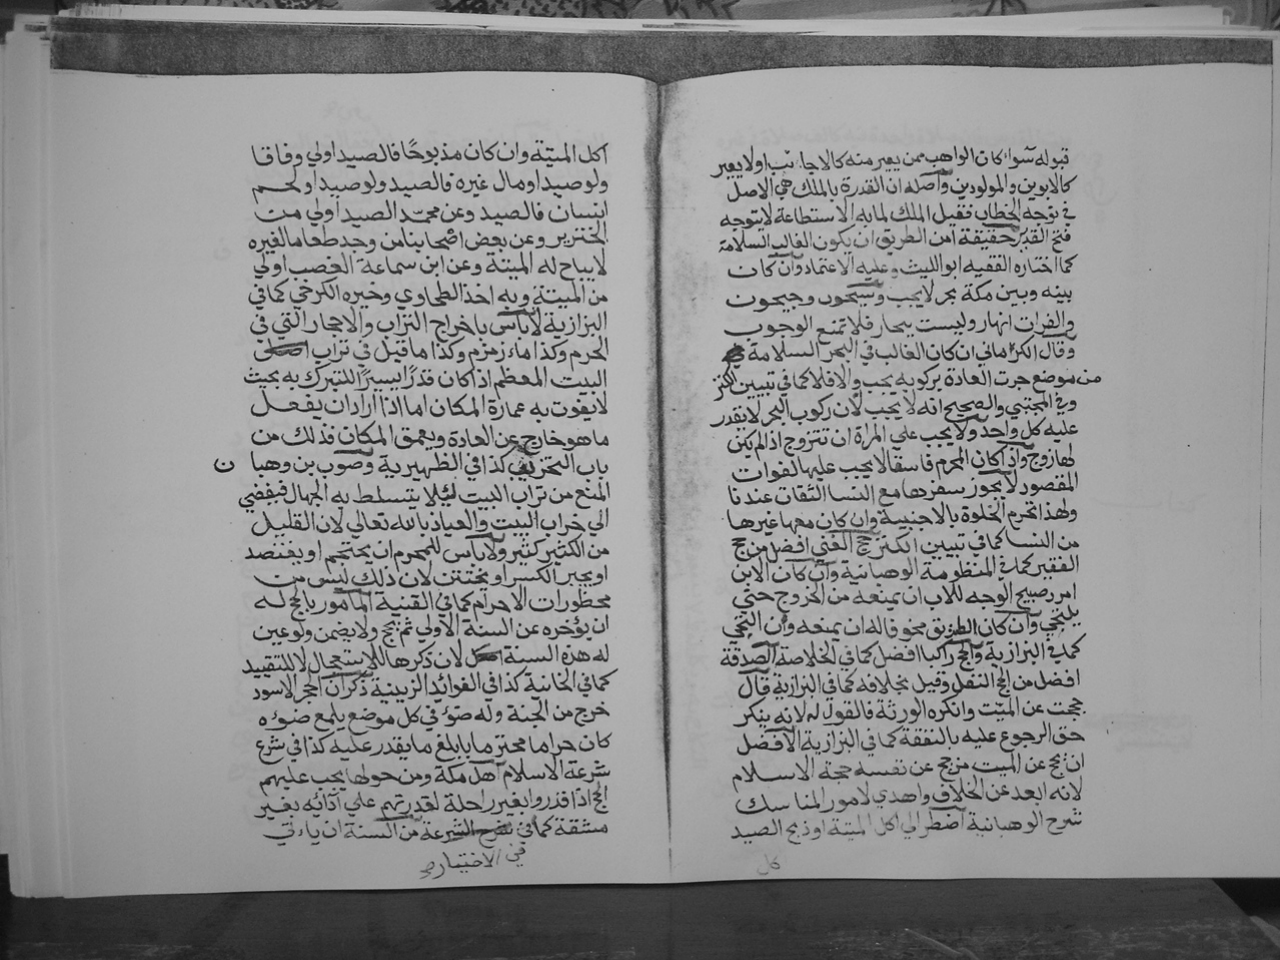 قبوله سواء كان الواهب ممن يعير منه كالاجانب اولا يعير
كالابوين والمولودين واصله ان القدرة بالملك هي الاصل
في توجه الخطاب فقبل الملك لما به الاستطاعة لا يتوجه
فتح القدير حقيقة امن الطريق ان يكون الغالب السلامة
كما اختاره الفقيه ابو الليث وعليه الاعتماد وان كان
بينه وبين مكة بحر لا يجب وسيحون وجيحون
والفرات انهار وليست ببحار فلا تمنع الوجوب
وقال الكرماني ان كان الغالب في البحر السلامة
من موضع جرت العادة بركوبه يجب والا فلا كما في تبيين الكنز
وفي المجتبي والصحيح انه لا يجب لان ركوب البحر لا يقدر
عليه كل واحد ولا يجب علي المراة ان تتزوج اذا لم يكن
لها زوج واذا كان المحرم فاسقا لا يجب عليها لفوات
المقصود لا يجوز سفرها مع النسا الثقات عندنا
ولهذا تحرم الخلوة بالاجنبية وان كان معها غيرها
من النسا كما في تبيين الكنز حج الغني افضل من حج
الفقير كما في المنظومة الوهبانية وان كان الابن
امرد صبيح الوجه للاب ان يمنعه من الخروج حتي
يلتحي وان كان الطريق مخوفا له ان يمنعه وان التحي
كما في البزازية والحج راكبا افضل كما في الخلاصة الصدقة
افضل من الحج النفل وقيل بخلافه كما في البزازية قال
حججت عن الميت وانكره الورثة فالقول له لانه ينكر
حق الرجوع عليه بالنفقة كما في البزازية الافضل
ان يحج عن الميت من حج عن نفسه حجة الاسلام
لانه ابعد عن الخلاف واهدي لامور المناسك
شرح الوهبانية اضطر الي اكل الميتة او ذبح الصيد
كل
اكل الميتة وان كان مذبوحا فالصيد اولي وفاقا
ولو صيد او مال غيره فالصيد ولو صيد او لحم
انسان فالصيد وعن محمد الصيد اولي من
الخنزير وعن بعض اصحابنا من وجد طعاما لغيره
لا يباح له الميتة وعن ابن سماعة الغصب اولي
من الميتة وبه اخذ الطحاوي وخيره الكرخي كما في
البزازية لا باس باخراج التراب والاحجار التي في
الحرم وكذا ماء زمزم وكذا ما قيل في تراب
البيت المعظم اذا كان قدرا يسيرا للتبرك به بحيث
لا يفوت به عمارة المكان اما اذا اراد ان يفعل
ما هو خارج عن العادة ويعمق المكان فذلك من
باب التخريب كذا في الظهيرية وصوب بن وهبا ن
المنع من تراب البيت لئلا يتسلط به الجهال فيفضي
الي خراب البيت والعياذ بالله تعالي لان القليل
من الكثير كثير ولا باس للمحرم ان يحتجم او يفتصد
او يجبر الكسر او يختتن لان ذلك ليس من
محظورات الاحرام كما في القنية المامور بالحج له
ان يؤخره عن السنة الاولي ثم يحج ولا يضمن ولو عين
له هذه السنة لان ذكرها للاستعجال لا للتقييد
كما في الخانية كذا في الفوائد الزينية ذكر ان الحجر الاسود
خرج من الجنة وله ضوء في كل موضع يلمع ضوءه
كان حراما محترما بابلغ ما يقدر عليه كذا في شرع
شرعة الاسلام اهل مكة ومن حولها يجب عليهم
الحج اذا قدروا بغير راحلة لقدرتهم علي ادائه بغير
مشقة كما في شرح الشرعة من السنة ان ياتي
في الاختيار صح